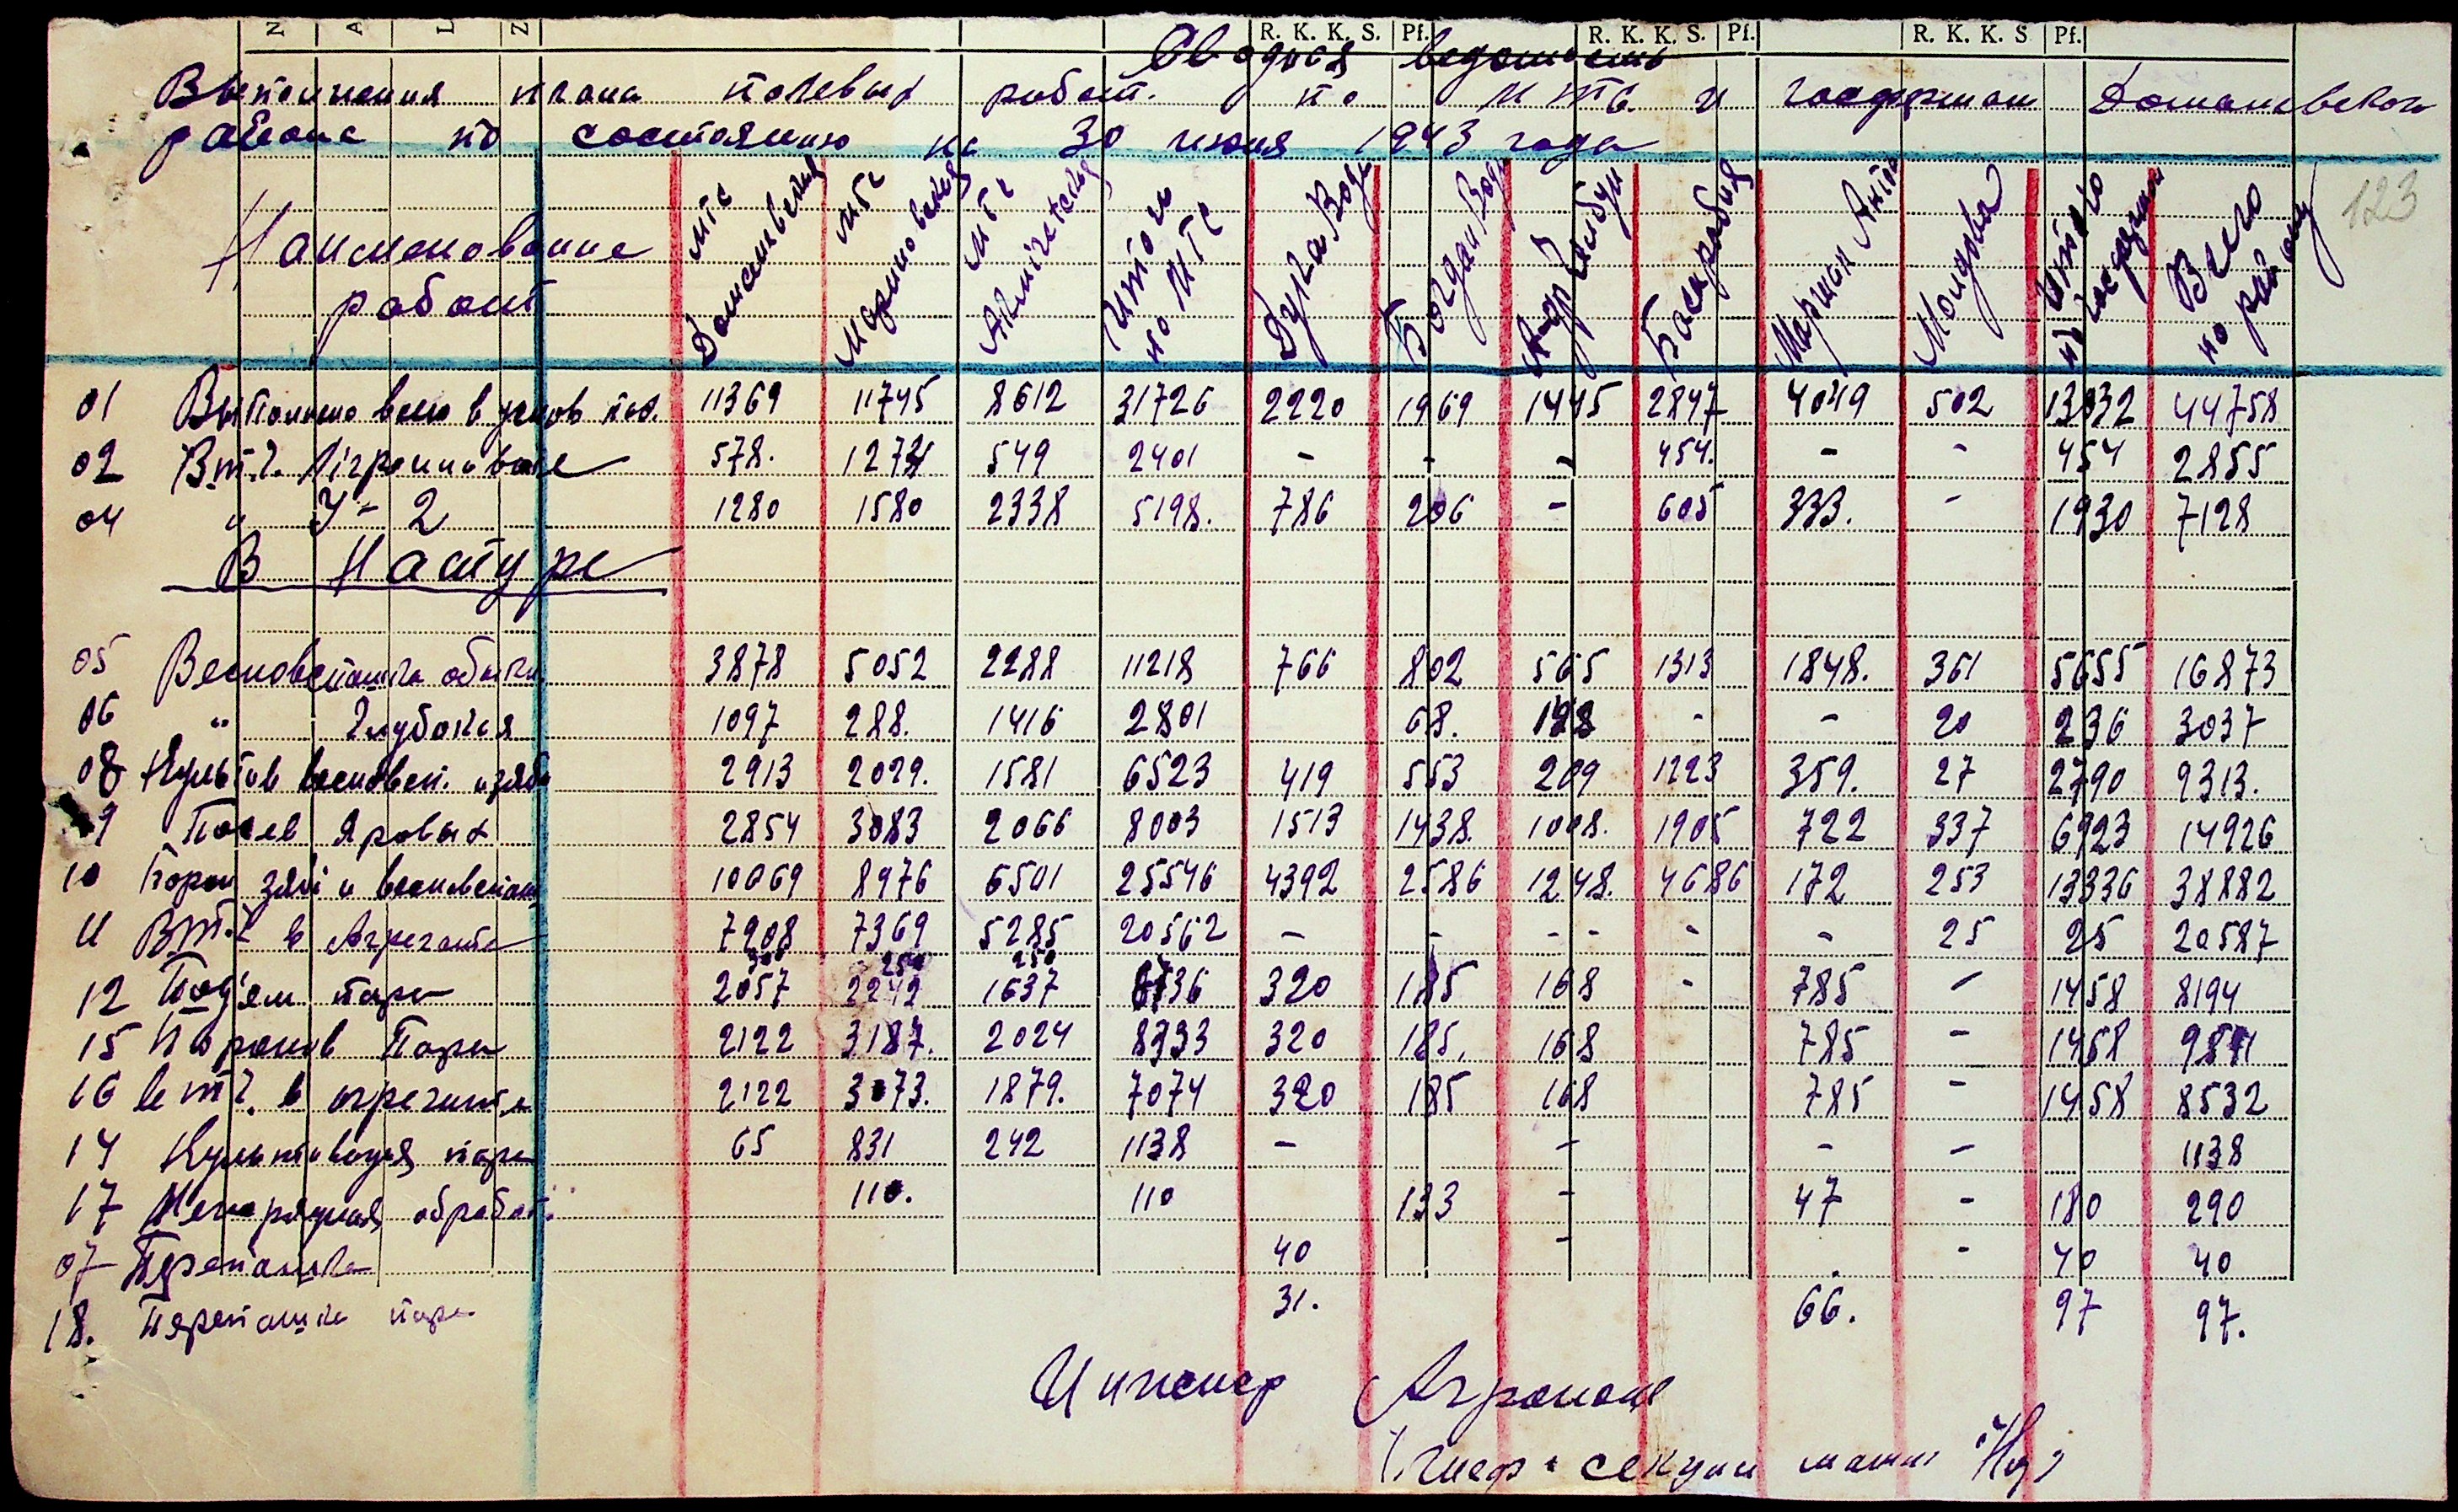 N A L Z R. K. K. S. Pf. R. K. K. S. Pf. R. K. K. S Pf.
Сводная ведомость
Выполнения плана полевых работ. по МТС и госфермам Доманевском
районе по состоянию на 30 июня 1943 года
123
Наименование работ МТС Доманевская МТС Мариновская МТС Акмечетская Итого по МТС Дулка Воды Богдан Воды Андр Чамбул Басарабия Маршал Антон Молдова Итого по госфермам Всего по району
01 Выполнено всего в услов пах. 11369 11745 8612 31726 2220 1969 1445 2847 4049 502 13032 44758
02 В т.ч. 578. 1274 549 2401 - - - 454. - - 454 2855
04 " У-2 1280 1580 2338 5198. 786 206 - 605 333. - 1930 7128
В Натуре
05 Весновспашка обычн 3878 5052 2288 11218 766 802 565 1313 1848. 361 5655 16873
06 " Глубокая 1097 288. 1416 2801 68. 148 - - 20 236 3037
08 Культив весновсп. и зяби 2913 2029. 1581 6523 419 553 209 1223 359. 27 2790 9313.
9 Посев Яровых 2854 3083 2066 8003 1513 1438. 1008. 1905 722 337 6923 14926
10 Борон зяби и весновспаш 10069 8976 6501 25546 4392 2586 1248. 4686 172 253 13336 38882
11 В т.ч в Агрегате 7908 7369 5285 20562 - - - - - - 25 25 20587
300 250 250
12 Под'ем пара 2057 2242 1637 6736 320 185 168 - 785 - 1458 8194
15 Боронов Пара 2122 3187. 2024 8333 320 185. 168 785 - 1458 9841
16 в т.ч. в агрегате 2122 3073. 1879. 7074 320 185 168 785 - 1458 8532
14 Культивация пара 65 831 242 1138 - - - - 1138
17 Междурядная обработ. 110. 110 133 - 47 - 180 290
07 Перепашка 40 - - 40 40
18. Перепашка пара 31. 66. 97 97.
Инженер Агроном
секции машин